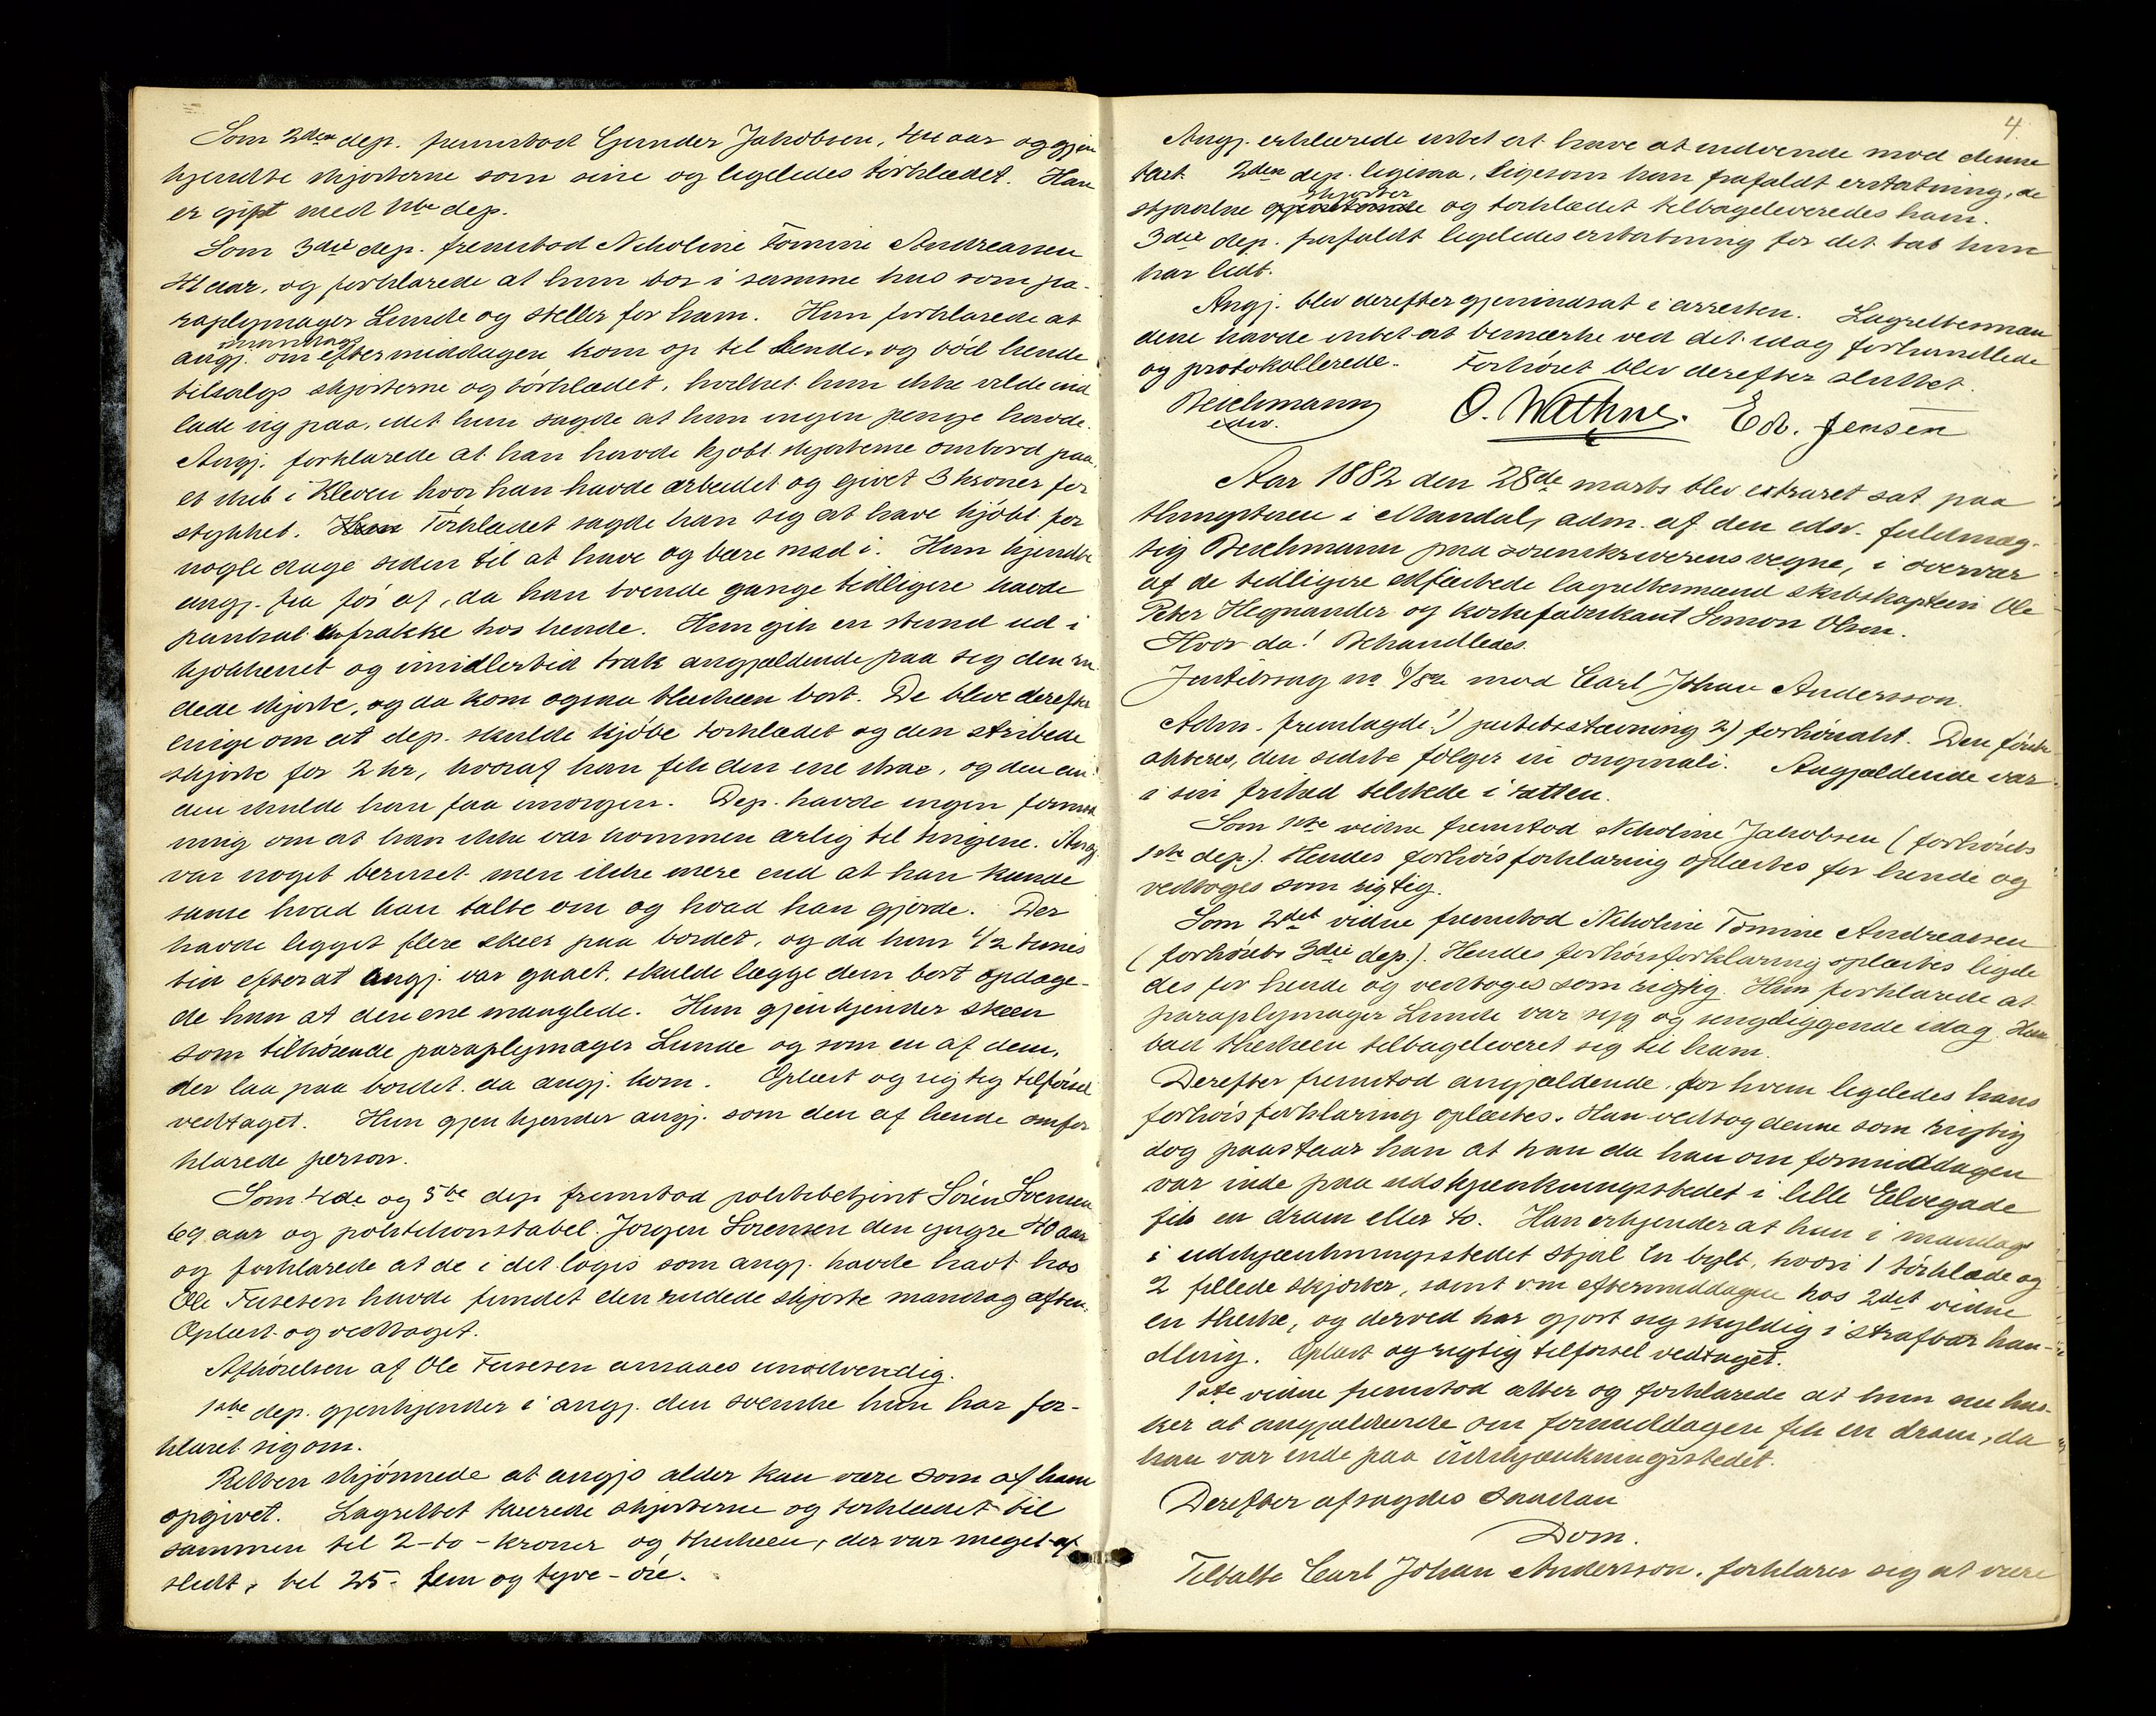 Som 2den dep. fremstod Gunder Jakobsen, 44 aar og gjen
kjendte skjorterne som sine og ligeledes tørklædet. Han
er gift med 1ste dep.
Som 3die dep. fremstod Nicholine Tomine Andreassen
41 aar, og forklarede at hun bor i samme hus som pa-
raplymager Lunde og steller for ham. Hun forklarede at
angj. mandag om eftermiddagen kom op til hende og bød hende
tilsalgs skjorterne og tørklædet, hvilket hun ikke vilde ind
lade sig paa, idet hun sagde at hun ingen penge havde.
Angj. forklarede at han havde kjøbt skjorterne ombord paa
et skib i Kleven hvor han havde arbeidet og givet 3 kroner for
stykket. Tørklædet sagde han sig at have kjøbt for
nogle dage siden til at have og bære mad i. Hun kjendte
angj. fra før af, da han tvende gange tidligere havde
pantsat en frakke hos hende. Hun gik en stund ud i
kjøkkenet og imidlertid trak angjældende paa sig den ru
dede skjorte, og da kom ogsaa theskeen bort. De bleve derefter
enige om at dep. skulde kjøbe tørklædet og den stribede
skjorte for 2 kr, hvoraf han fik den ene strax, og den an
den skulde han faa imorgen. Dep. havde ingen formod
ning om at han ikke var kommen ærlig til tingene. Angj.
var noget beruset men ikke mere end at han kunde
sanse hvad han talte om og hvad han gjorde. Der
havde ligget flere skeer paa bordet, og da hun 1/2 times
tid efterat angj. var gaaet, skulde lægge dem bort opdage-
de hun at den ene manglede. Hun gjenkjender skeen
som tilhørende paraplymager Lunde og som en af dem,
der laa paa bordet da angj. kom. Oplæst og rigtig tilførsel
vedtaget. Hun gjenkjender angj. som den af hende omfor
klarede person.
Som 4de og 5te dep. fremstod politibetjent Søren Svensen
69 aar og politikonstabel Jørgen Sørensen den yngre 40 aar
og forklarede at de i det logis som angj. havde havt hos
Ole Tusesen havde fundet den rudede skjorte mandag aften.
Oplæst og vedtaget.
Afhørelsen af Ole Tusesen ansaaes unødvendig.
1ste dep. gjenkjender i angj. den svenske hun har for-
klaret sig om.
Retten skjønnede at angjs alder kan være som af ham
opgivet. Lagrettet taxerede skjorterne og tørklædet til
sammen til 2-to-kroner og theskeen, der var meget af
slidt, til 25- fem og tyve-øre.
4.
Angj. erklærede intet at have at indvende mod denne
taxt. 2den dep. ligesaa, ligesom han frafaldt erstatning, de
stjaalne skjorter og tørklædet tilbageleveredes ham.
3die dep. frafaldt ligeledes erstatning for det tab hun
har lidt.
Angj. blev derefter gjenindsat i arresten. Lagrettesmæn
dene havde intet at bemærke ved det idag forhandlede
og protokollerede. Forhøret blev derefter sluttet.
Reichmann O. Wathne. Ed. Jensen
edsv.
Aar 1882 den 28de marts blev extraret sat paa
thingstuen i Mandal, adm. af den edsv. fuldmæg-
tig Reichmann paa sorenskriverens vegne, i overvær
af de tidligere edfæstede lagrettesmænd skibskaptein Ole
Peter Hegnander og korkefabrikant Simon Olsen.
Hvor da! Behandledes.
Justitssag no 6/82 mod Carl Johan Andersson.
Adm. fremlagde 1) politistævning 2) forhørsakt. Den første
akteres, den sidste følger in originali. Angjældende var
i sin frihed tilstede i retten.
Som 1ste vidne fremstod Nicholine Jakobsen (forhørets
1ste dep.). Hendes forhørsforklaring oplæstes for hende og
vedtoges som rigtig.
Som 2det vidne fremstod Nicholine Tomine Andreassen
(forhørets 3die dep.). Hendes forhørsforklaring oplæstes ligele
des for hende og vedtoges som rigtig. Hun forklarede at
paraplymager Lunde var syg og sengeliggende idag. Hun
bad theskeen tilbageleveret sig til ham.
Derefter fremstod angjældende, for hvem ligeledes hans
forhørsforklaring oplæstes. Han vedtog denne som rigtig
dog paastaar han at han da han om formiddagen
var inde paa udskjænkningsstedet i lille Elvegade
fik en dram eller to. Han erkjender at han i mandags
i udskjænkningsstedet stjal en bylt, hvori 1 tørklæde og
2 fillede skjorter, samt om eftermiddagen hos 2det vidne
en theske, og derved har gjort sig skyldig i strafbar han-
dling. Oplæst og rigtig tilførsel vedtaget.
1ste vidne fremstod atter og forklarede at hun nu hus-
ker at angjældende om formiddagen fik en dram, da
han var inde paa udskjænkningsstedet.
Derefter afsagdes saadan
Dom.
Tiltalte Carl Johan Andersson, forklarer sig at være